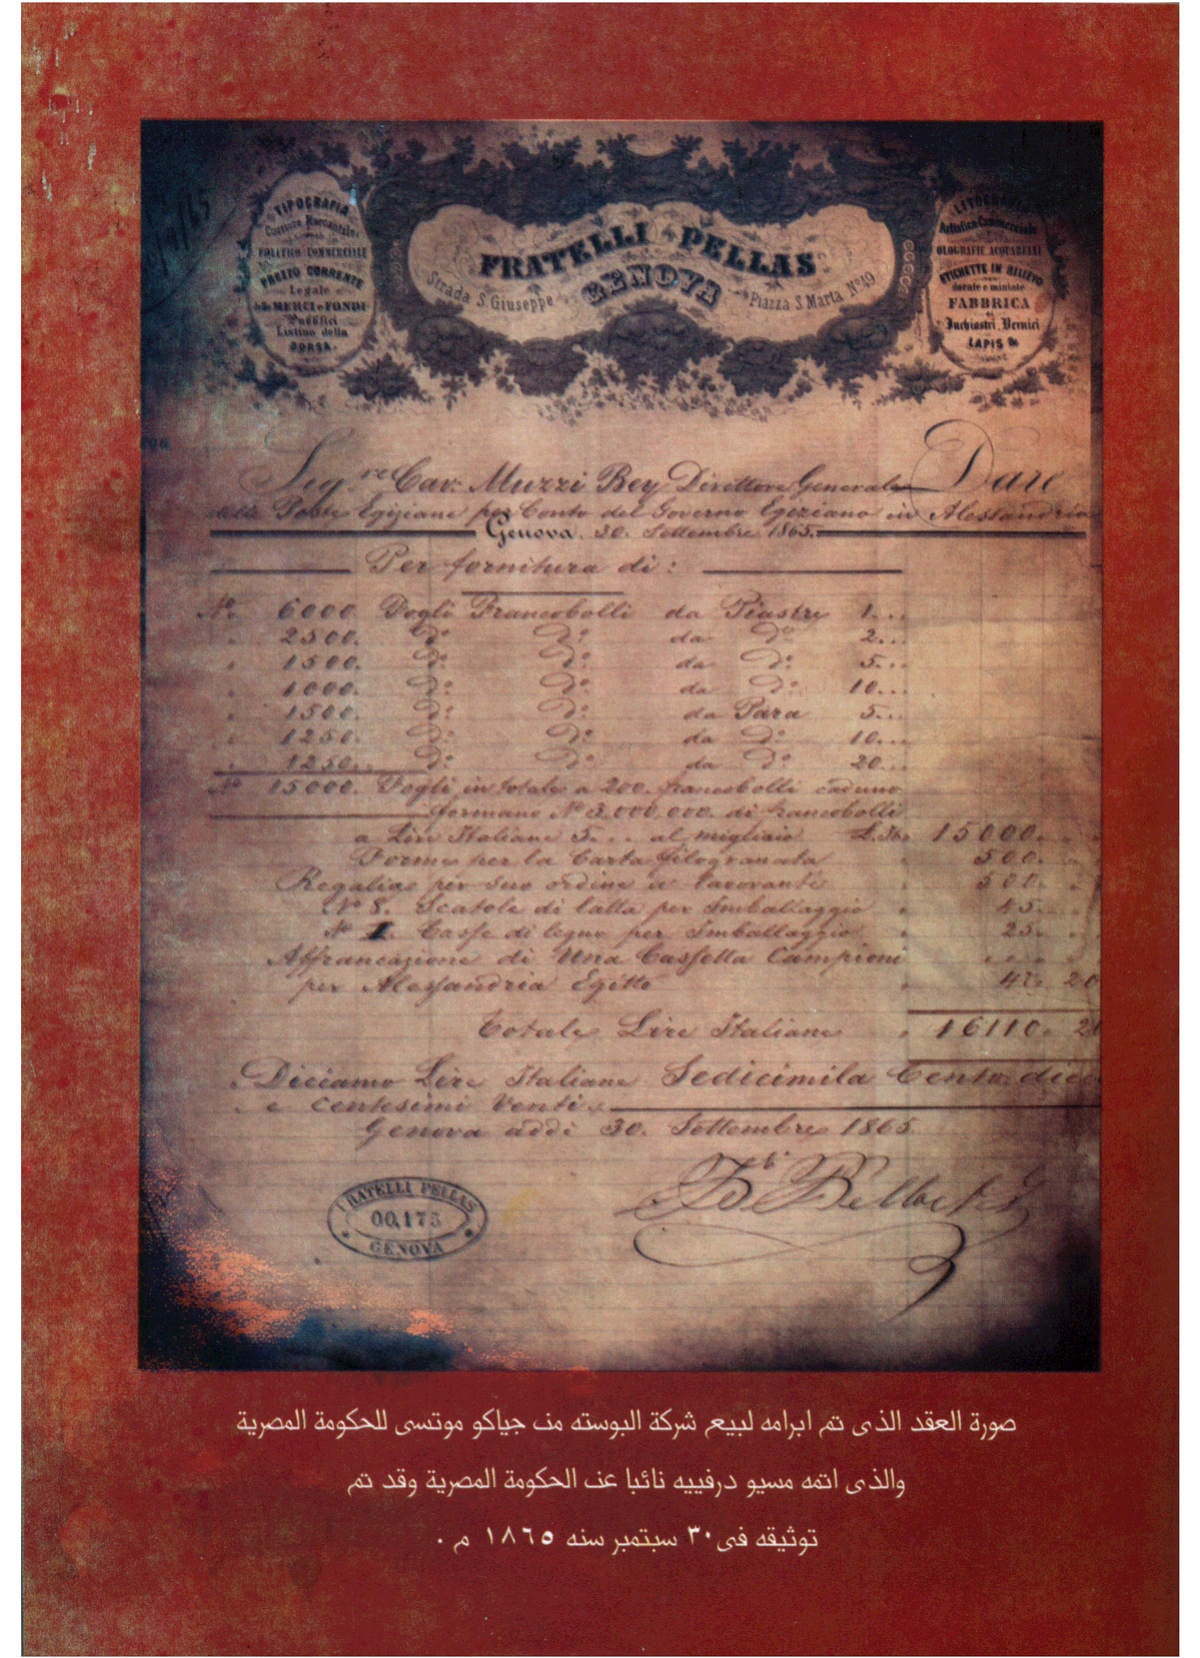 TIPOGRAFIA
Corriere Mercantile
POLITICO COMMERCIALE
PREZZO CORRENTE
Legale
MERCI e FONDI
Pubblici
Listino della
BORSA
FRATELLI PELLAS
GENOVA
Strada S. Giuseppe
Piazza S. Marta N.º 19
LITOGRAFIA
Artistica Commerciale
OLOGRAFIE ACQUARELLI
ETICHETTE IN RILIEVO
dorate e miniate
FABBRICA
di
Inchiostri, Vernici
LAPIS &
Sig.re Cav: Muzzi Bey Direttore Generale Dare
delle Poste Egiziane per Conto del Governo Egiziano in Alessandria
Genova, 30. Settembre 1865.
Per fornitura di:
N.º 6000. Fogli Francobolli da Piastre 1...
" 2500. D.º D.º da D.º 2...
" 1500. D.º D.º da D.º 5...
" 1000. D.º D.º da D.º 10...
" 1500. D.º D.º da Para 5...
" 1250. D.º D.º da D.º 10...
" 1250. D.º D.º da D.º 20...
N.º 15000. Fogli in totale a 200. francobolli caduno
formano N.º 3.000.000. di francobolli
a Lire Italiane 5... al migliaio 15000.
Forme per la Carta filogranata " 500.
Regalia per suo ordine a lavoranti " 500.
N.º 8. Scatole di latta per Imballaggio " 45.
N.º 1. Casse di legno per Imballaggio " 25.
Affrancazione di Una Cassetta Campioni
per Alessandria Egitto " 20
Totale Lire Italiane " 16110. 20
Diciamo Lire Italiane Sedicimila Cento dieci
e centesimi Venti
Genova addì 30. Settembre 1865.
FRATELLI PELLAS
00,175
GENOVA
صورة العقد الذى تم ابرامه لبيع شركة البوسته من جياكو موتسى للحكومة المصرية
والذى اتمه مسيو درفييه نائبا عن الحكومة المصرية وقد تم
توثيقه فى ٣٠ سبتمبر سنه ١٨٦٥ م .